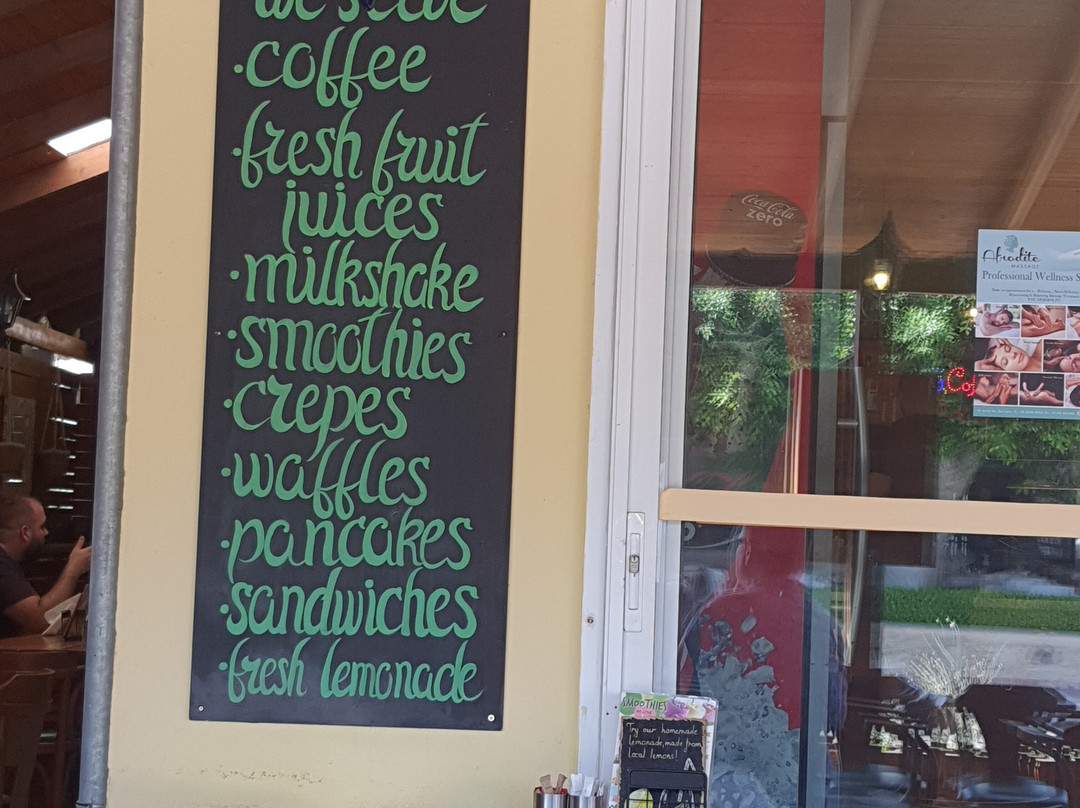 we serve
·coffee
·fresh fruit
juices
·milkshake
·smoothies
·crepes
·waffles
·pancakes
·sandwiches
·fresh lemonade
Coca-Cola
zero
Afrodite
MASSAGE
Professional Wellness S
Co
SMOOTHIES
Try our homemade
lemonade, made from
local lemons!